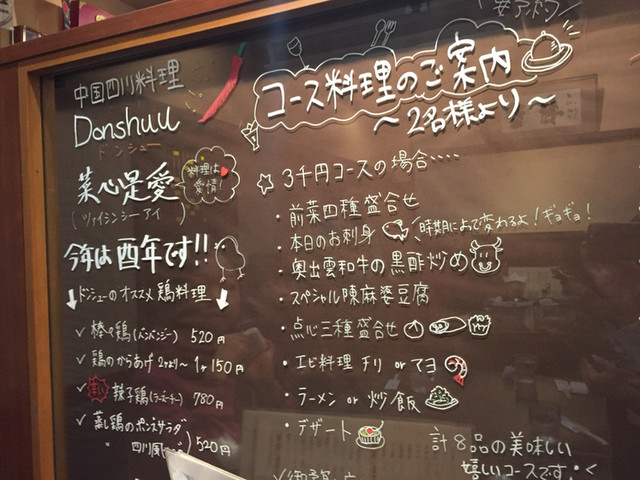 中国四川料理
Donshuu
ドンシュー
菜心是愛
(ツァイシンシーアイ)
料理は
愛情!
今年は酉年です!!
↓ドンシューのオススメ鶏料理↓
✓棒々鶏(バンバンジー) 520円
✓鶏のからあげ 2ヶより〜 1ヶ150円
✓辣子鶏(ラーズーチー) 780円
✓蒸し鶏のポンズサラダ
〃 四川風 520円
コース料理のご案内
〜2名様より〜
☆3千円コースの場合····
・前菜四種盛合せ
・本日のお刺身 時期によって変わるよ!ギョギョ!
・奥出雲和牛の黒酢炒め
・スペシャル陳麻婆豆腐
・点心三種盛合せ
・エビ料理 チリ or マヨ
・ラーメン or 炒飯
・デザート
計8品の美味しい
嬉しいコースです